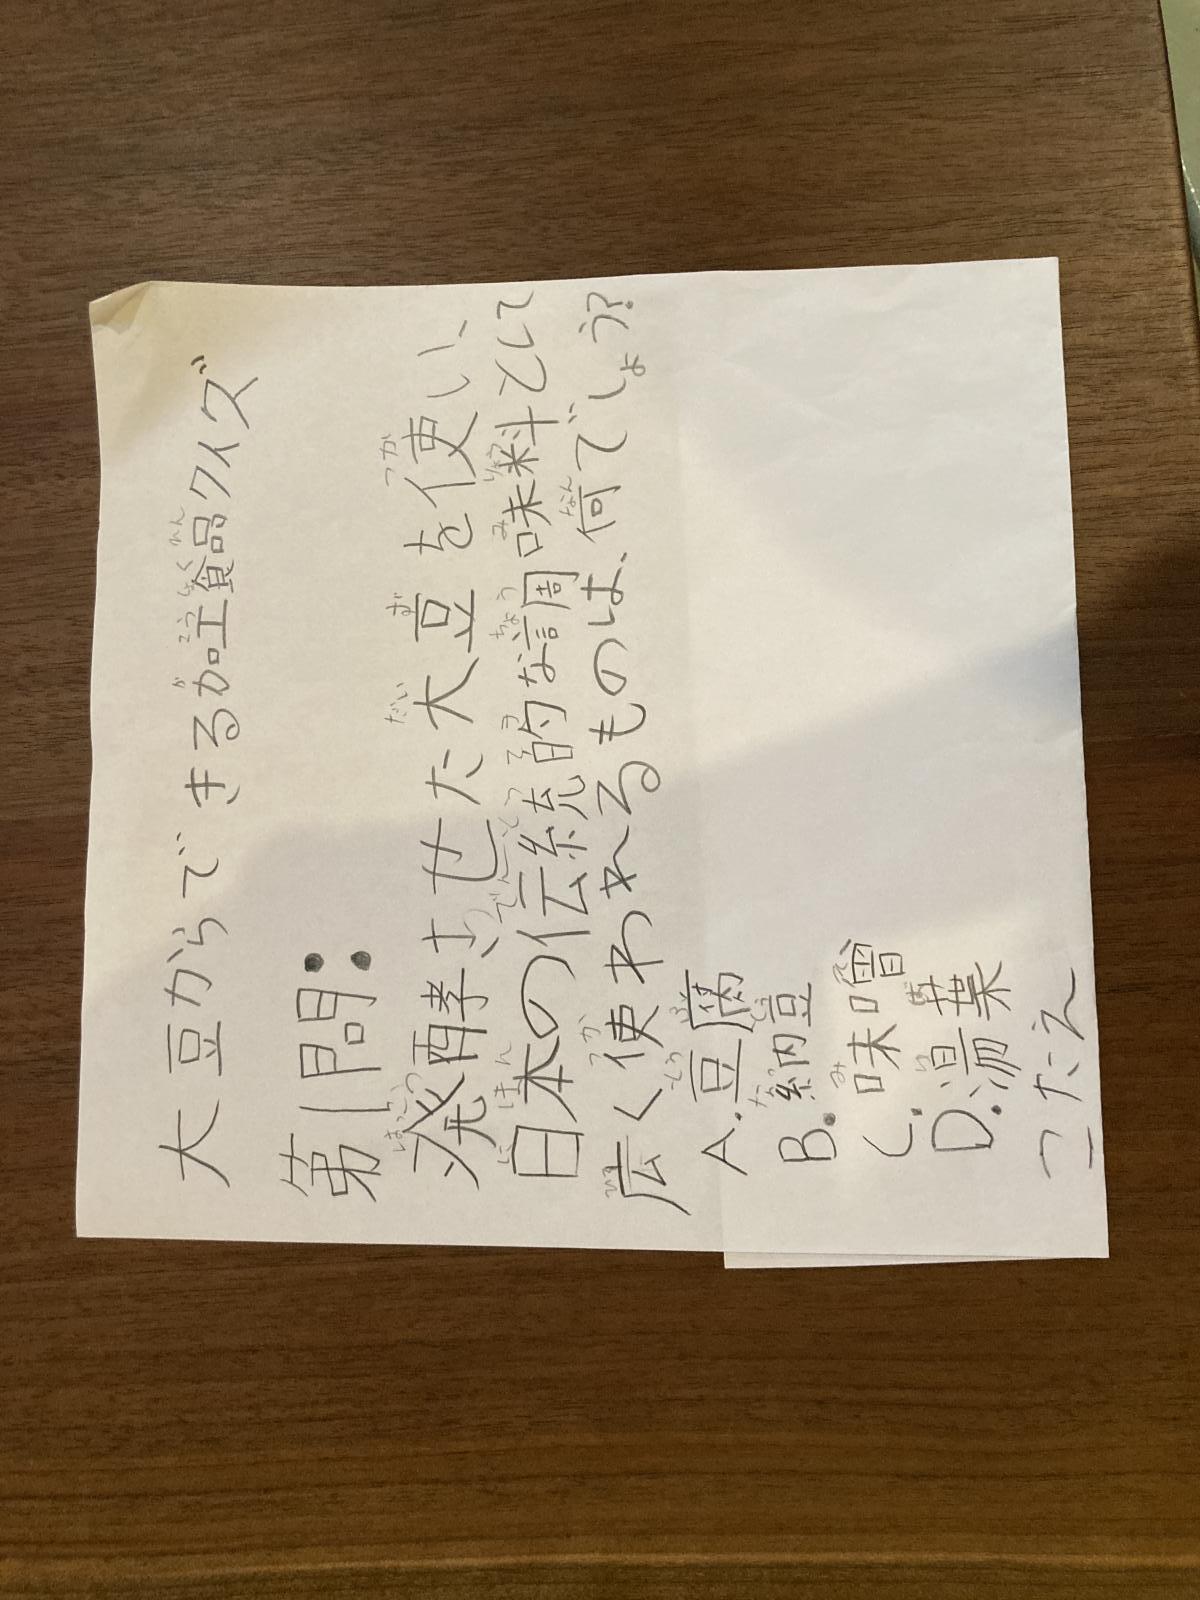 大豆からできる加工食品クイズ
第1問:
発酵させた大豆を使い、
日本の伝統的な調味料として
広く使われるものは、何でしょう?
A.豆腐
B.納豆
C.味噌
D.湯葉
こたえ